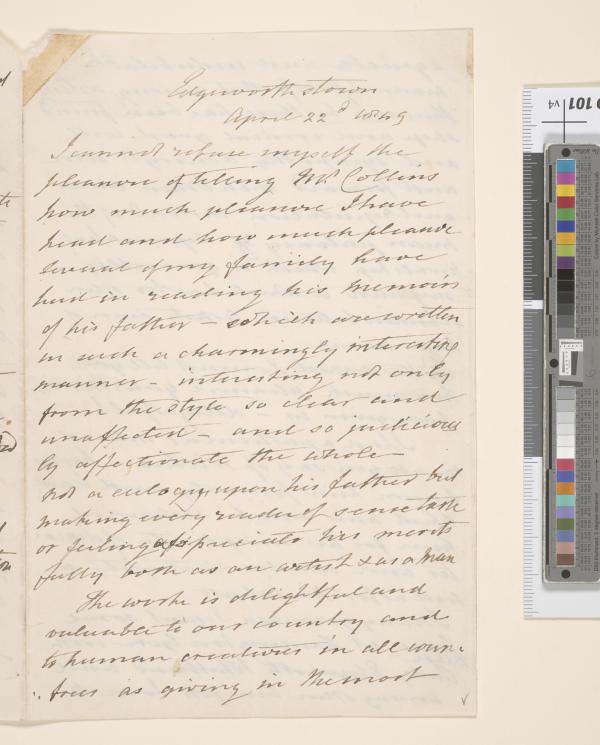 Edgeworthstown
April 22d 1849
I cannot refuse myself the
pleasure of telling Mr Collins
how much pleasure I have
head and how much pleasure
several of my family have
had in reading his Memoirs
of his father – which are written
in such a charmingly interesting
manner – interesting not only
from the style so clear and
unaffected – and so judicious
ly affectionate the whole –
not a eulogy upon his father but
making every reader of sense taste
or feeling appreciate his merits
fully both as an artist & as a Man
The work is delightful and
valuable to our country and
to human creatures in all coun-
tries as giving in the most
101 v4